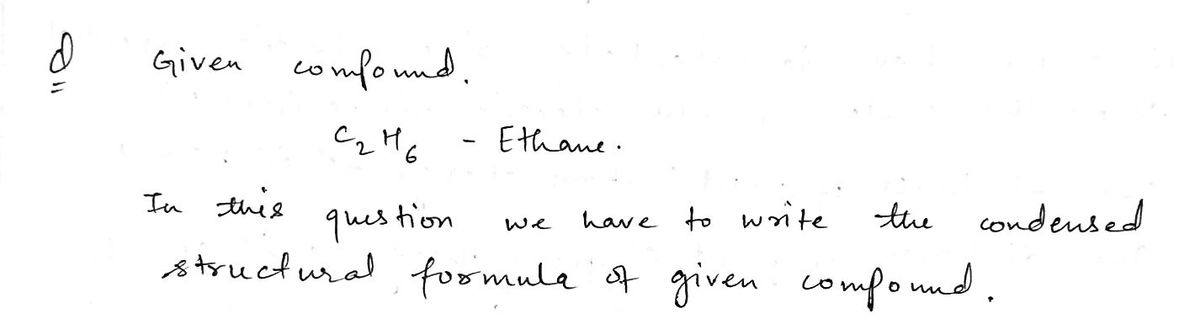 d Given compound.
C₂H₆ - Ethane.
In this question we have to write the condensed
structural formula of given compound.